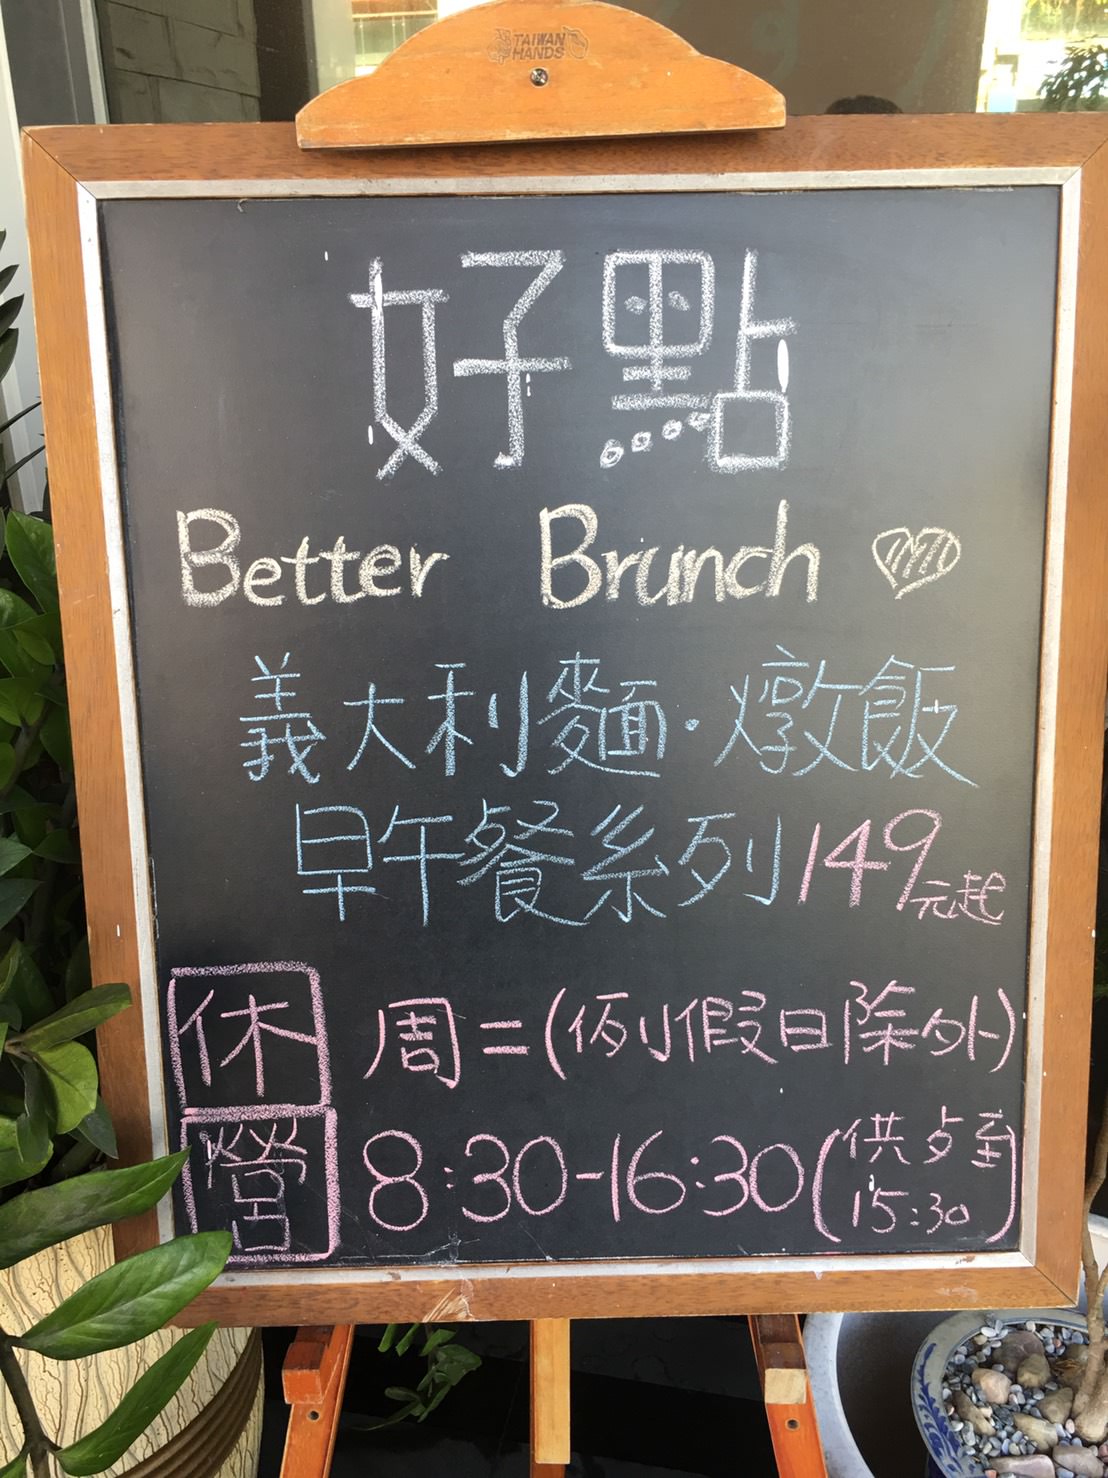 TAIWAN
HANDS
好點
Better Brunch
義大利麵·燉飯
早午餐系列 149元起
休 周二(例假日除外)
營 8:30-16:30(供歺至15:30)